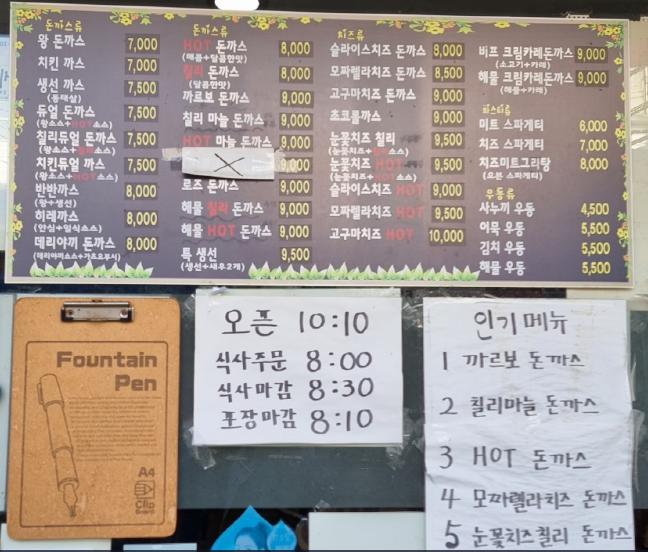 돈까스류
왕 돈까스 7,000
치킨 까스 7,000
생선 까스 7,500
(동태살)
듀얼 돈까스 7,500
(왕소스+HOT소스)
칠리듀얼 돈까스 7,500
치킨듀얼 까스 7,500
(왕소스+HOT소스)
반반까스 8,000
(왕+생선)
히레까스 8,000
(안심+일식소스)
데리야끼 돈까스 8,000
(데리야끼소스+가쓰오부시)
돈까스류
HOT 돈까스 8,000
(매콤+달콤한맛)
칠리 돈까스 8,000
(달콤한맛)
까르보 돈까스 9,000
칠리 마늘 돈까스 9,000
HOT 마늘 돈까스 9,000
X
로즈 돈까스 9,000
해물 칠리 돈까스 9,000
해물 HOT 돈까스 9,000
특 생선 9,500
(생선+새우2개)
치즈류
슬라이스치즈 돈까스 8,000
모짜렐라치즈 돈까스 8,500
고구마치즈 돈까스 9,000
초코롤까스 9,000
눈꽃치즈 칠리 9,500
눈꽃치즈 HOT 9,500
(눈꽃치즈+HOT소스)
슬라이스치즈 HOT 9,000
모짜렐라치즈 HOT 9,500
고구마치즈 HOT 10,000
비프 크림카레돈까스 9,000
(소고기+카레)
해물 크림카레돈까스 9,000
(해물+카레)
파스타류
미트 스파게티 6,000
치즈 스파게티 7,000
치즈미트그라탕 8,000
(오븐 스파게티)
우동류
사누끼 우동 4,500
어묵 우동 5,500
김치 우동 5,500
해물 우동 5,500
Fountain
Pen
A4
Clip
Board
오픈 10:10
식사주문 8:00
식사마감 8:30
포장마감 8:10
인기메뉴
1 까르보 돈까스
2 칠리마늘 돈까스
3 HOT 돈까스
4 모짜렐라치즈 돈까스
5 눈꽃치즈칠리 돈까스